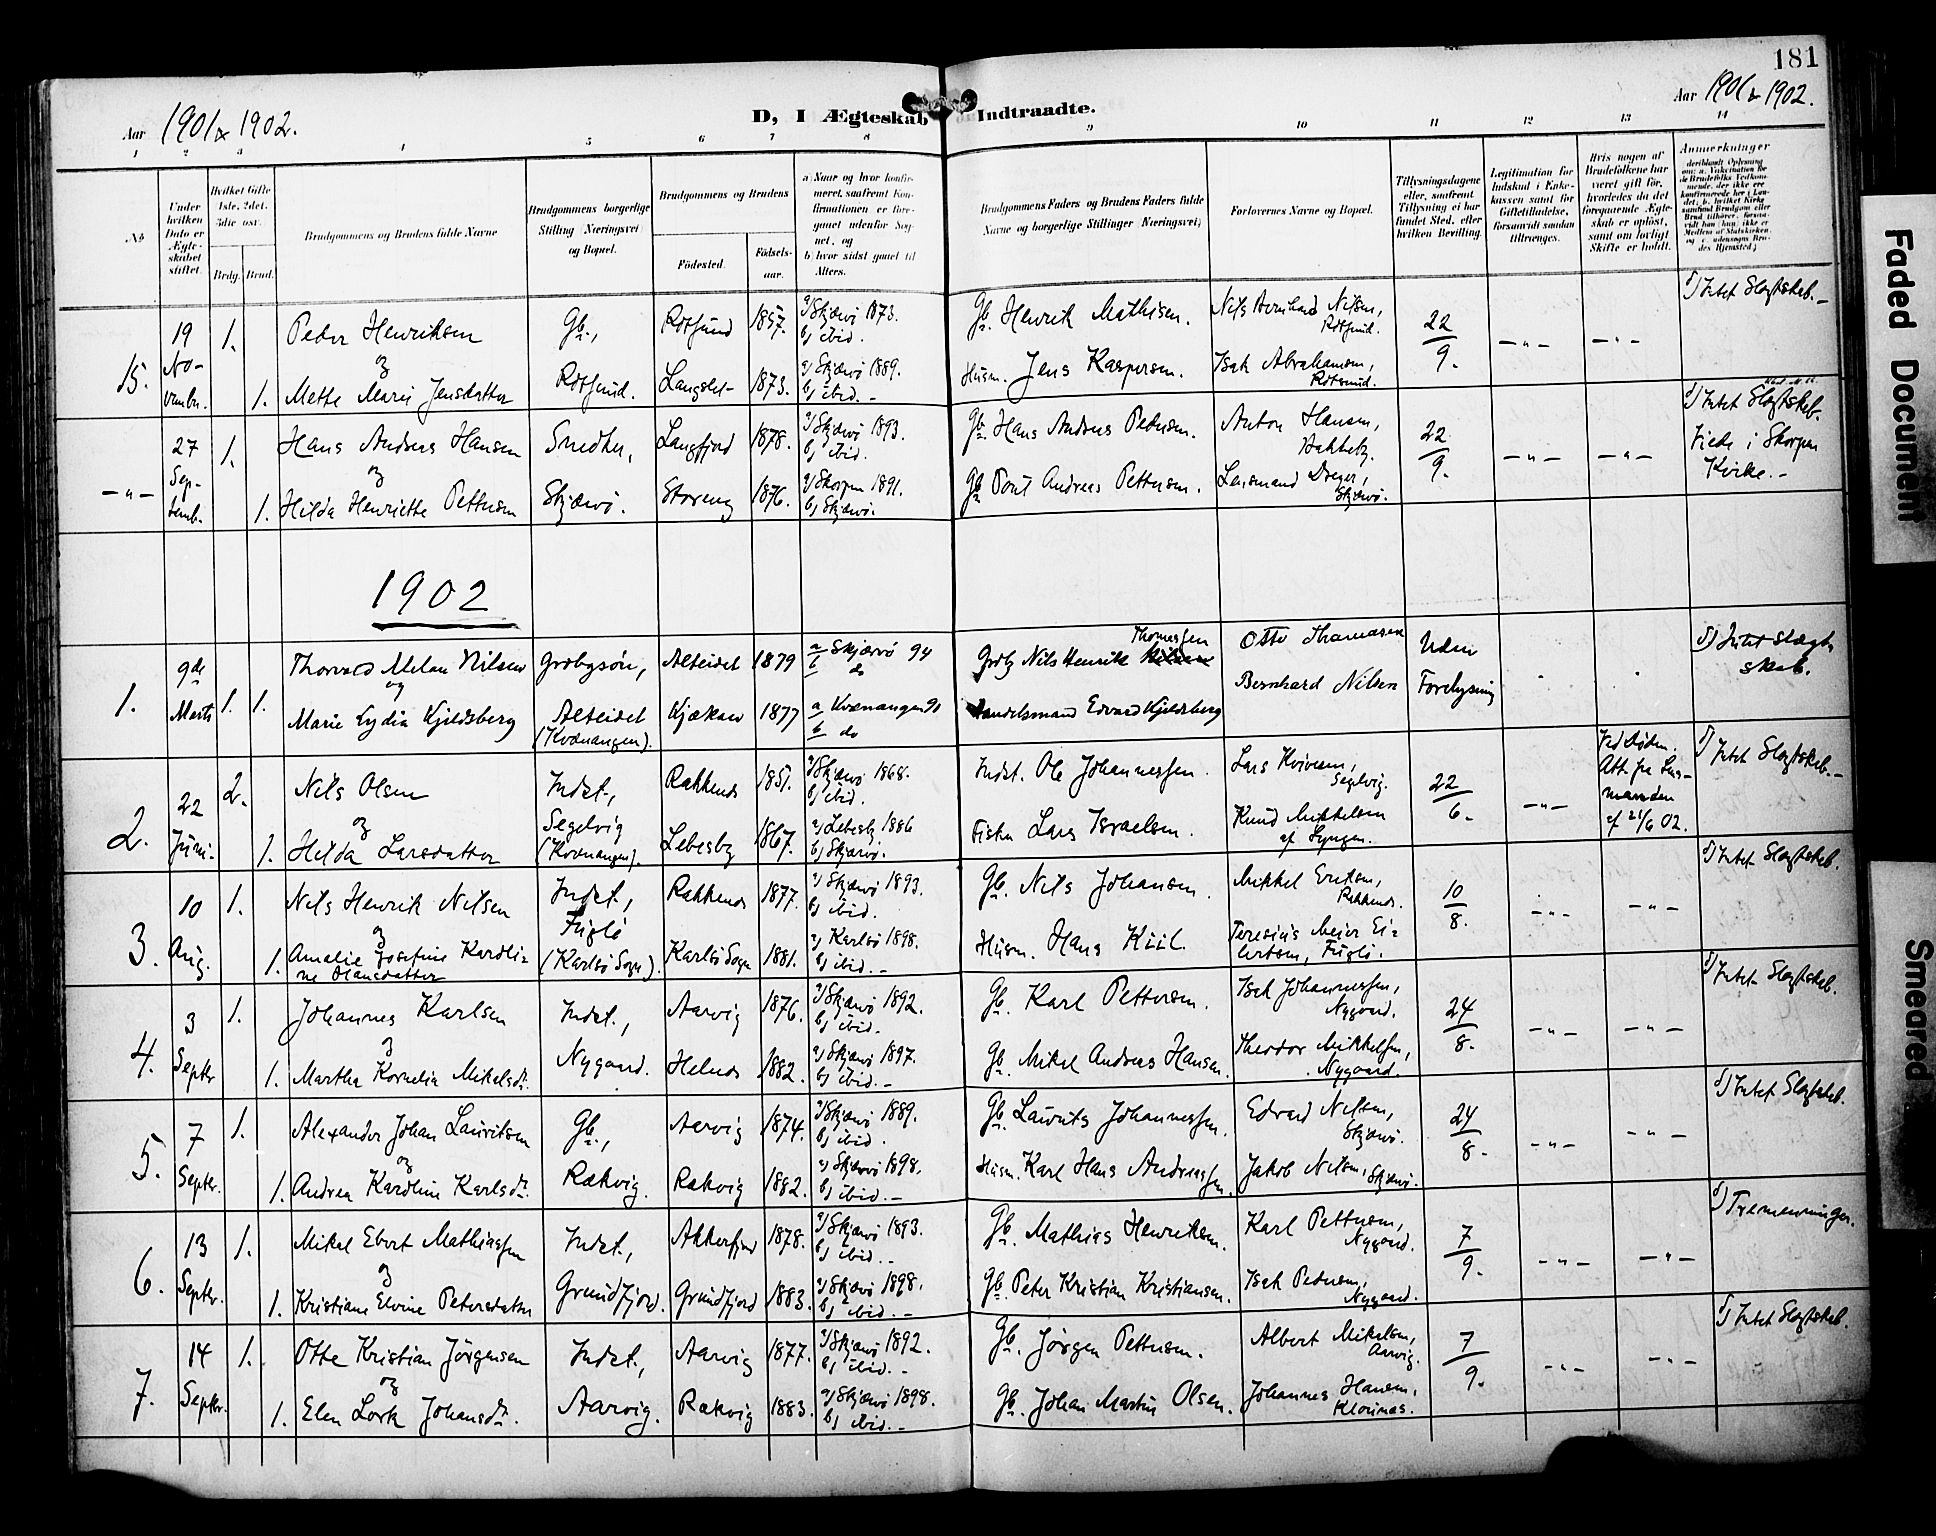 181
Aar 1901 & 1902.
D, I Ægteskab Indtraadte.
Aar 1901 & 1902.
1 2 3 4 5 6 7 8 9 10 11 12 13 14
No
Under hvilken Dato er Ægteskabet stiftet.
Hvilket Gifte 1ste, 2det, 3die osv.
Brdg. Brud.
Brudgommens og Brudens fulde Navne
Brudgommens borgerlige Stilling (Næringsvei) og Bopæl.
Brudgommens og Brudens
Fødested.
Fødselsaar.
a) Naar og hvor konfirmeret, saafremt Konfirmationen er foregaaet udenfor Sognet, og
b) hvor sidst gaaet til Alters.
Brudgommens Faders og Brudens Faders fulde Navne og borgerlige Stillinger (Næringsvei)
Forlovernes Navne og Bopæl.
Tillysningsdagene eller, saafremt Tillysning ei har fundet Sted, efter hvilken Bevilling.
Legitimation for Indskud i Enkekassen samt for Giftetilladelse, forsaavidt saadan tiltrænges.
Hvis nogen af Brudefolkene har været gift før, hvorledes da det foregaaende Ægteskab er opløst, samt om lovligt Skifte er holdt.
Anmerkninger
15. 19 Novembr. 1. Peder Henriksen Gb., Rotsund 1857. a) Skjærvø 1873. b) ibid. Gb. Henrik Mathisen. Nils Nilsen, Rotsund. 22/9. —"— —"— Intet Slægtskab.—
og
1. Mette Marie Jensdatter Rotsund. Langslet 1873. a) Skjærvø 1889. b) ibid.— Husm. Jens Kaspersen. Isak Abrahamsen, Rotsund.
—"— 27 Septemb. 1. Hans Andreas Hansen Snedker, Langfjord 1878. a) Skjærvø 1893. b) ibid. Gb. Hans Andreas Pedersen. Anton Hansen, Hakkeby. 22/9. —"— —"— Intet Slægtskab.
og
1. Hilda Henriette Pettersen Skjærvø. Storeng 1876. a) Skorpen 1891. b) Skjærvø. Gb. Andreas Pettersen. Lensmand Dreyer, Skjærvø. Viede i Skorpen Kirke.—
1902
1. 9de Marts 1. 1. Thorvald Nilsen Grdbgsøn, Alteidet 1879 a Skjærvø 94 b do Grdbg Nils Henrik Thomessen Otto Thomassen Uden Forlysning Intet Slægtskab.
og
Marie Lydia Kjeldsberg Alteidet (Kvænangen). Kjækan 1877 a Kvænangen 91 b do Handelsmand Edvard Kjeldsberg Bernhard Nilsen
2. 22 Juni. 2. Nils Olsen Indst., Rakkenes 1851. a) Skjærvø 1868. b) ibid. Indst. Ole Johannessen. Lars Segelvig. 22/6. —"— Ved Døden. Att. fra Lensmanden af 21/6 02. Intet Slægtskab.—
og
1. Hilda Larsdatter Segelvig (Kvænangen). Lebesby 1867. a) Lebesby 1886 b) Skjærvø. Fisker Lars Israelsen. Knud Mikkelsen af Lyngen.
3. 10 Aug. 1. Nils Henrik Nilsen Indst., Rakkenes 1877. a) Skjærvø 1893. b) ibid. Gb. Nils Johansen. Mikkel Eriksen, Rakkenes. 10/8. —"— —"— Intet Slægtskab.
og
1. Amalie Josefine Karoline Hansdatter Fuglø (Karlsø Sogn). Karlsø Sogn 1881. a) Karlsø 1898. b) ibid.— Husm. Hans Kiil. Teresius Meier Eilertsen, Fuglø.
4. 3 Septbr 1. Johannes Karlsen Indst., Aarvig 1876. a) Skjærvø 1892. b) ibid. Gb. Karl Pettersen. Isak Johannessen, Nygaard. 24/8. —"— —"— Intet Slægtskab.
og
1. Martha Kornelia Mikelsdr. Nygaard. Helnes 1882. a) Skjærvø 1897. b) ibid.— Gb. Mikel Andreas Hansen. Theodor Mikkelsen, Nygaard.
5. 7 Septbr. 1. Alexander Johan Lauritsen Gb., Aarvig 1874. a) Skjærvø 1889. b) ibid. Gb. Laurits Johannessen. Edvard Nilsen, Skjærvø. 24/8. —"— —"— Intet Slægtskab.
og
1. Andrea Karoline Karlsdr. Rakvig. Rakvig 1882. a) Skjærvø 1898. b) ibid.— Husm. Karl Hans Andreassen. Jakob Nilsen, Skjærvø.
6. 13 Septbr. 1. Mikel Ebert Mathiassen Indst., Akkerfjord 1878. a) Skjærvø 1893. b) ibid.— Gb. Mathias Henriksen. Karl Pettersen, Nygaard. 7/9. —"— —"— Tremenninger.
og
1. Kristiane Elvine Petersdatter Grundfjord. Grundfjord 1883. a) Skjærvø 1898. b) ibid.— Gb. Peter Kristian Kristiansen. Isak Pedersen, Nygaard.
7. 14 Septbr. 1. Otte Kristian Jørgensen Indst., Aarvig 1877. a) Skjærvø 1892. b) ibid.— Gb. Jørgen Pettersen. Albert Mikelsen, Aarvig. 7/9. —"— —"— Intet Slægtskab.
og
1. Elen Lovk Johansdr. Aarvig. Rakvig 1883. a) Skjærvø 1898. b) ibid.— Gb. Johan Martin Olsen. Johannes Hansen, Klovnes.
Faded Document
Smeared